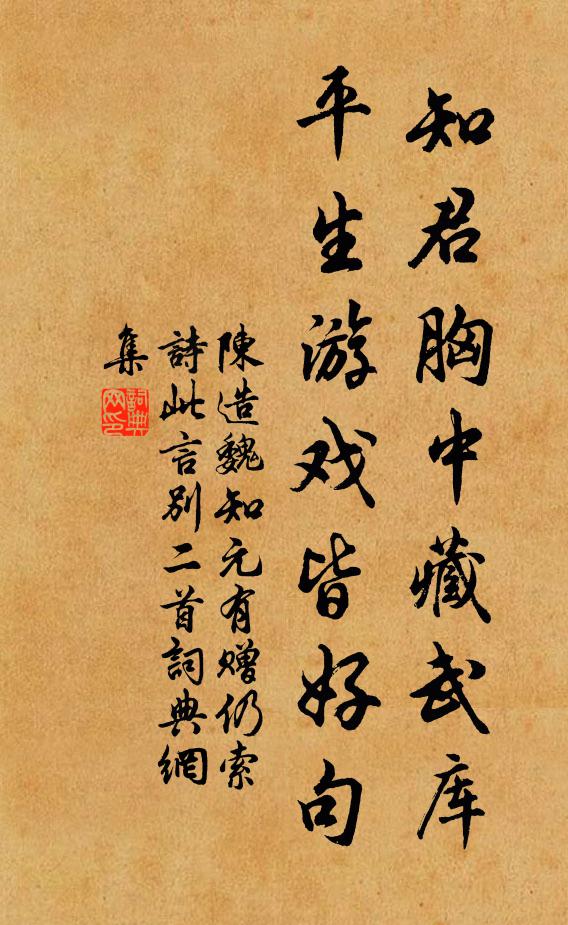 知君胸中藏武库
平生游戏皆好句
陳造魏知元有赠仍索
詩此言别二首詞典網
集
詞典
网印